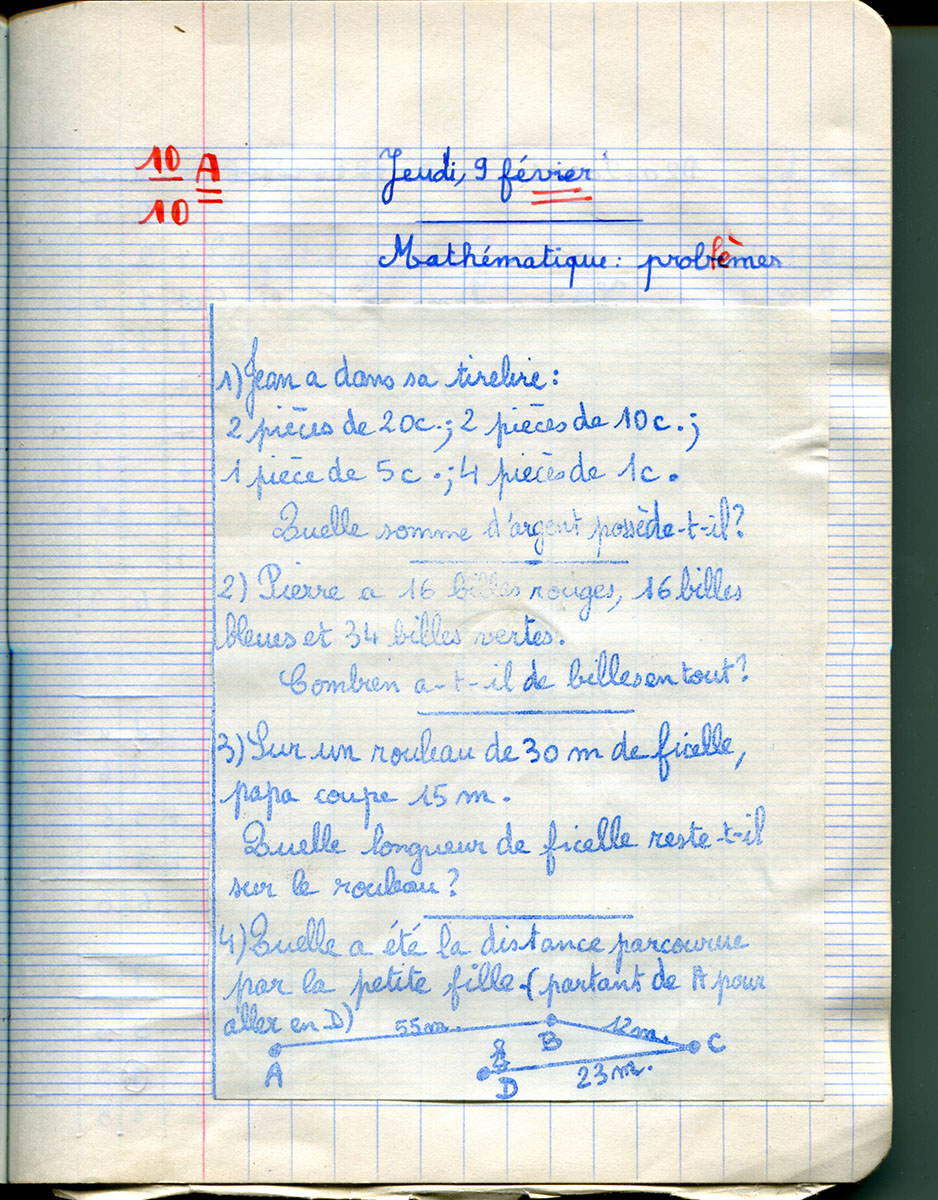 10 A
10
Jeudi, 9 février
Mathématique: problèmes
1) Jean a dans sa tirelire:
2 pièces de 20c.; 2 pièces de 10c.;
1 pièce de 5c.; 4 pièces de 1c.
Quelle somme d'argent possède-t-il?
2) Pierre a 16 billes rouges, 16 billes
bleues et 34 billes vertes.
Combien a-t-il de billes en tout?
3) Sur un rouleau de 30 m de ficelle,
papa coupe 15 m.
Quelle longueur de ficelle reste-t-il
sur le rouleau?
4) Quelle a été la distance parcourue
par la petite fille (partant de A pour
aller en D)
55m. 12m.
A B C
D 23m.